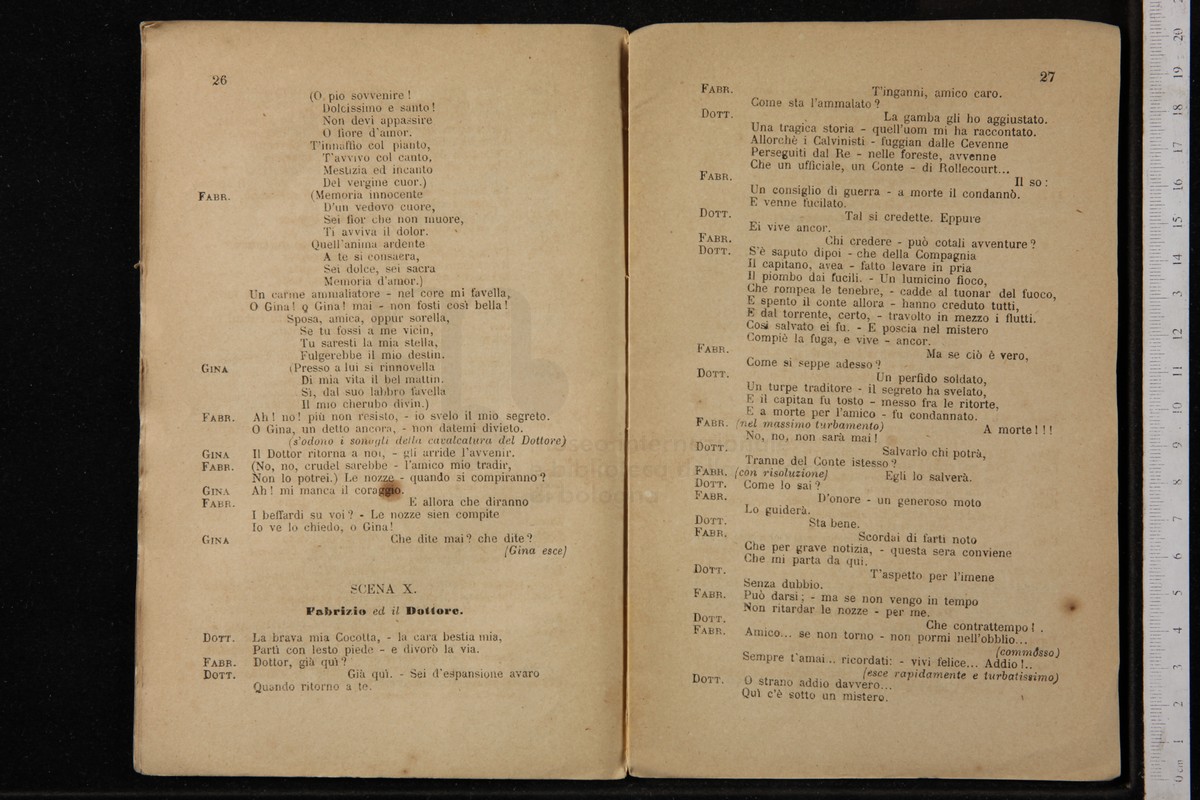 26
(O pio sovvenire!
Dolcissimo e santo!
Non devi appassire
O fiore d'amor.
T'innaffio col pianto,
T'avvivo col canto,
Mestizia ed incanto
Del vergine cuor.)
FABR. (Memoria innocente
D'un vedovo cuore,
Sei fior che non muore,
Ti avviva il dolor.
Quell'anima ardente
A te si consacra,
Sei dolce, sei sacra
Memoria d'amor.)
Un carme ammaliatore - nel core mi favella,
O Gina! o Gina! mai - non fosti così bella!
Sposa, amica, oppur sorella,
Se tu fossi a me vicin,
Tu saresti la mia stella,
Fulgerebbe il mio destin.
GINA (Presso a lui si rinnovella
Di mia vita il bel mattin.
Sì, dal suo labbro favella
Il mio cherubo divin.)
FABR. Ah! no! più non resisto, - io svelo il mio segreto.
O Gina, un detto ancora, - non datemi divieto.
(s'odono i sonagli della cavalcatura del Dottore)
GINA Il Dottor ritorna a noi, - gli arride l'avvenir.
FABR. (No, no, crudel sarebbe - l'amico mio tradir,
Non lo potrei.) Le nozze - quando si compiranno?
GINA Ah! mi manca il coraggio.
FABR. E allora che diranno
I beffardi su voi? - Le nozze sien compite
Io ve lo chiedo, o Gina!
GINA Che dite mai? che dite?
(Gina esce)
SCENA X.
Fabrizio ed il Dottore.
DOTT. La brava mia Cocotta, - la cara bestia mia,
Partì con lesto piede - e divorò la via.
FABR. Dottor, già quì?
DOTT. Già quì. - Sei d'espansione avaro
Quando ritorno a te.
27
FABR. T'inganni, amico caro.
Come sta l'ammalato?
DOTT. La gamba gli ho aggiustato.
Una tragica storia - quell'uom mi ha raccontato.
Allorchè i Calvinisti - fuggian dalle Cevenne
Perseguiti dal Re - nelle foreste, avvenne
Che un ufficiale, un Conte - di Rollecourt...
FABR. Il so:
Un consiglio di guerra - a morte il condannò.
E venne fucilato.
DOTT. Tal si credette. Eppure
Ei vive ancor.
FABR. Chi credere - può cotali avventure?
DOTT. S'è saputo dipoi - che della Compagnia
Il capitano, avea - fatto levare in pria
Il piombo dai fucili. - Un lumicino fioco,
Che rompea le tenebre, - cadde al tuonar del fuoco,
E spento il conte allora - hanno creduto tutti,
E dal torrente, certo, - travolto in mezzo i flutti.
Così salvato ei fu. - E poscia nel mistero
Compiè la fuga, e vive - ancor.
FABR. Ma se ciò è vero,
Come si seppe adesso?
DOTT. Un perfido soldato,
Un turpe traditore - il segreto ha svelato,
E il capitan fu tosto - messo fra le ritorte,
E a morte per l'amico - fu condannato.
FABR. (nel massimo turbamento) A morte!!!
No, no, non sarà mai!
DOTT. Salvarlo chi potrà,
Tranne del Conte istesso?
FABR. (con risoluzione) Egli lo salverà.
DOTT. Come lo sai?
FABR. D'onore - un generoso moto
Lo guiderà.
DOTT. Sta bene.
FABR. Scordai di farti noto
Che per grave notizia, - questa sera conviene
Che mi parta da qui.
DOTT. T'aspetto per l'imene
Senza dubbio.
FABR. Può darsi; - ma se non vengo in tempo
Non ritardar le nozze - per me.
DOTT. Che contrattempo!
FABR. Amico... se non torno - non pormi nell'obblio...
(commosso)
Sempre t'amai... ricordati: - vivi felice... Addio!..
(esce rapidamente e turbatissimo)
DOTT. O strano addio davvero...
Quì c'è sotto un mistero.